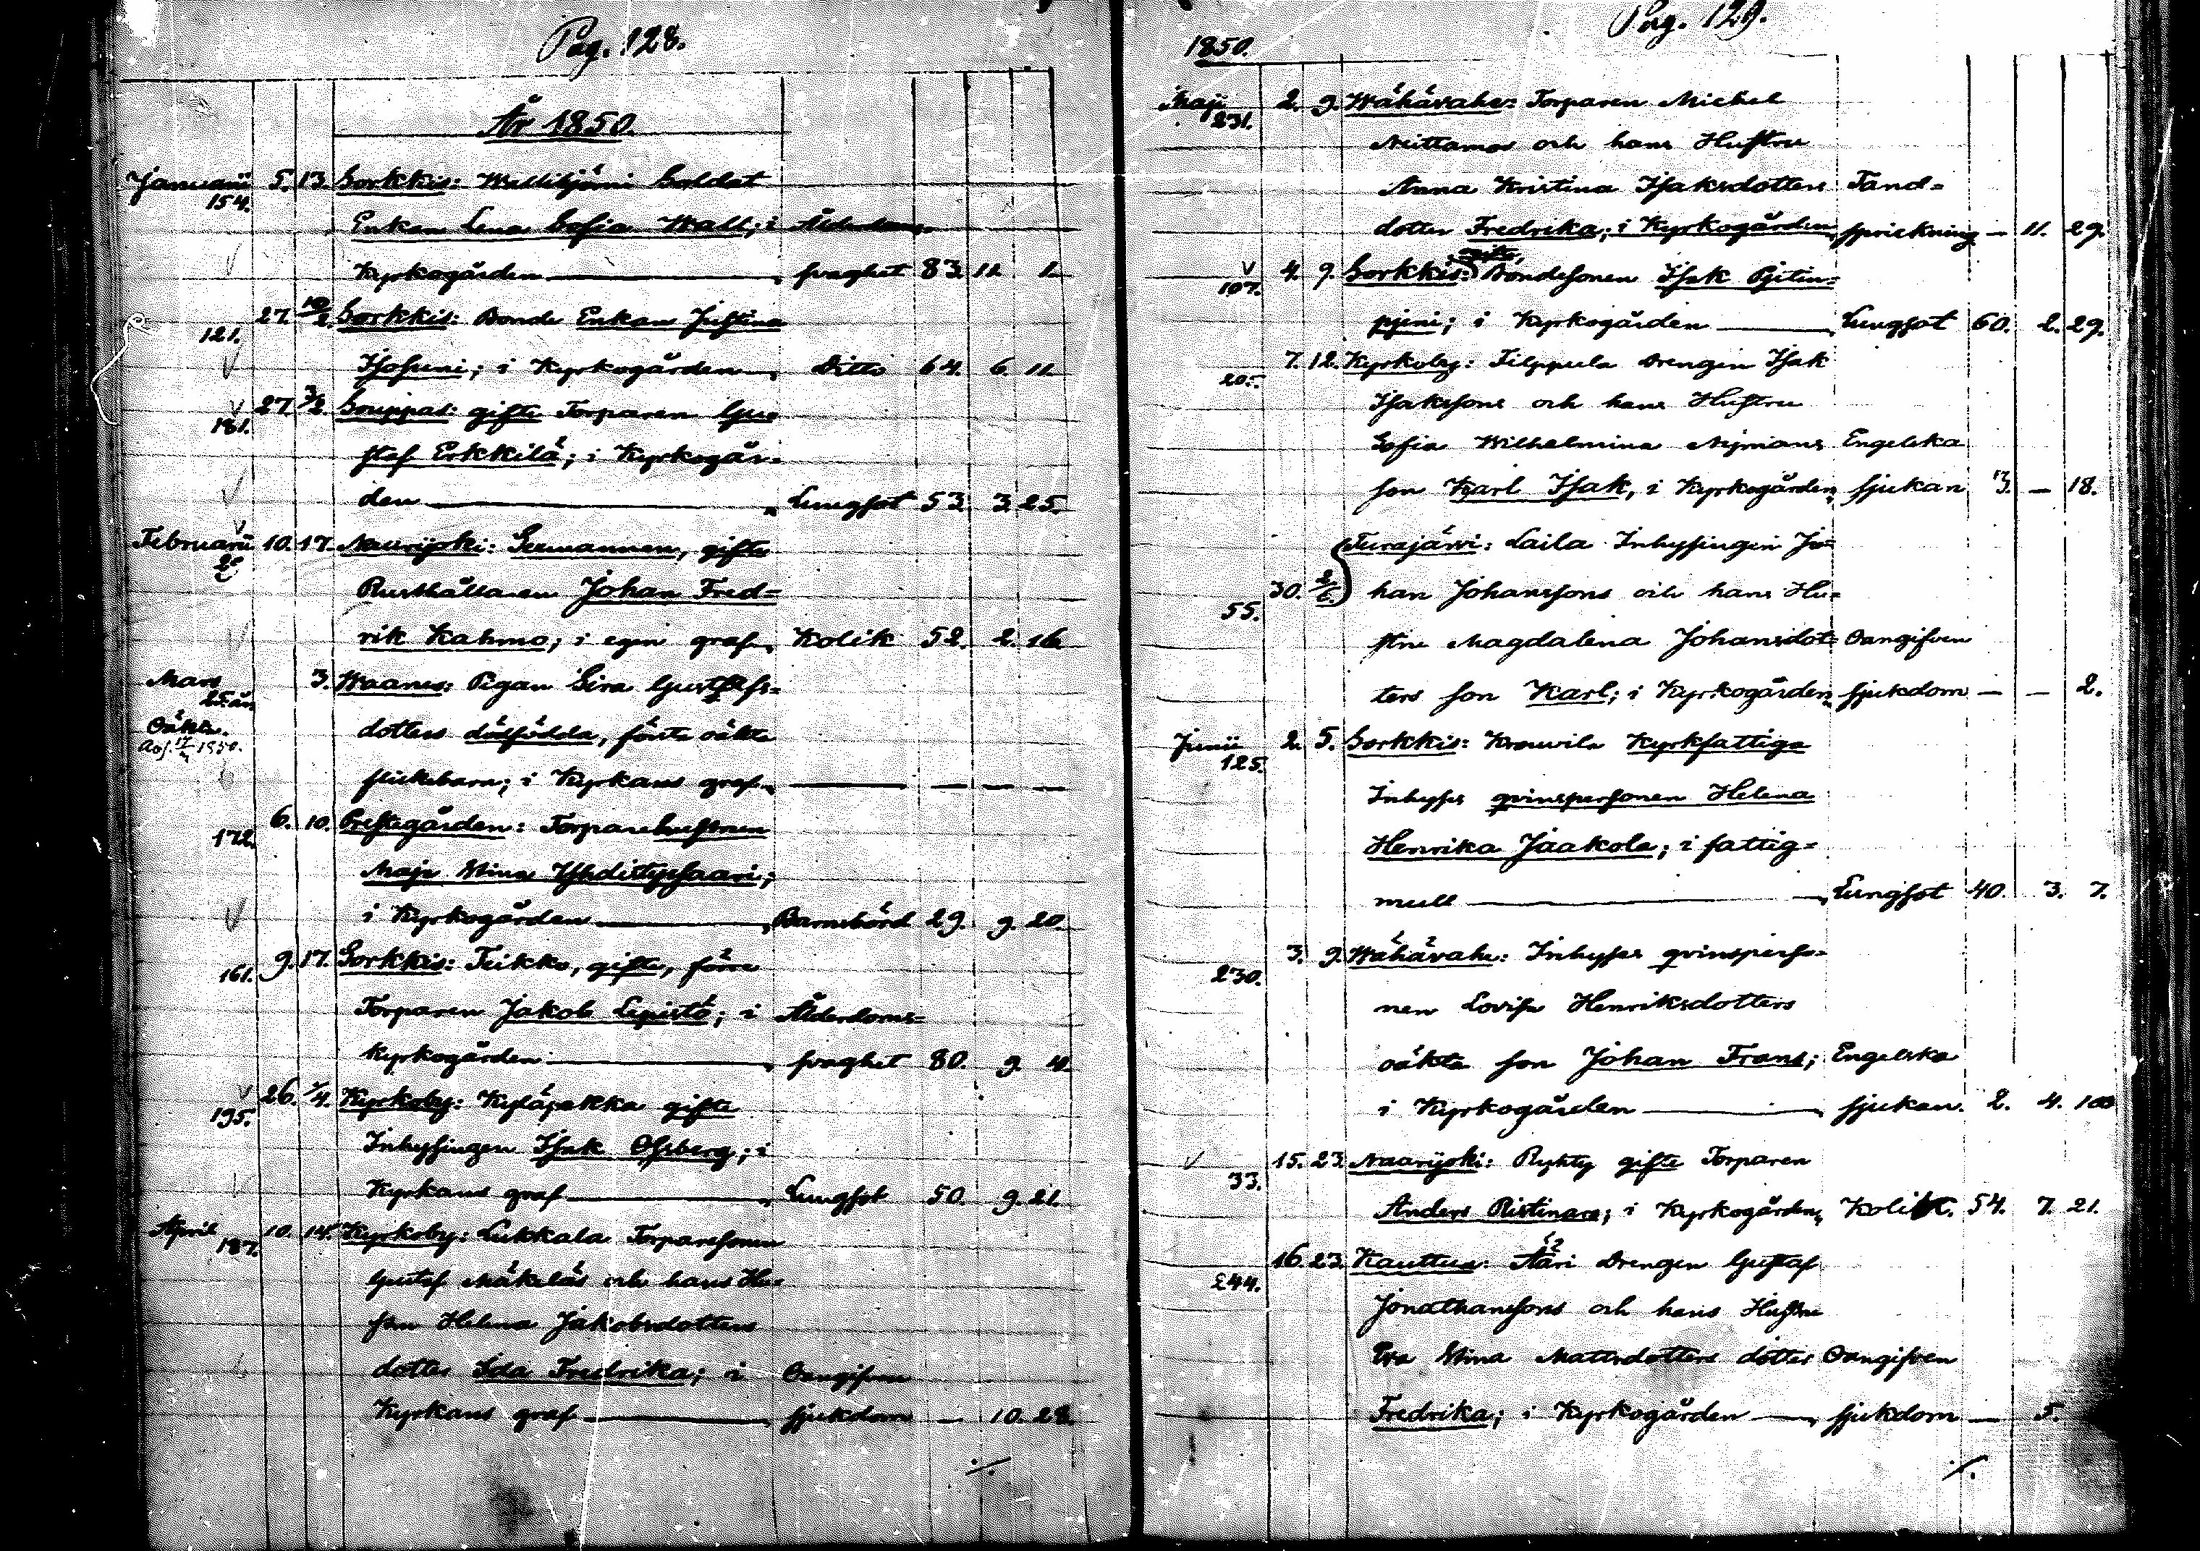 Pag. 128.
År 1850.
Januarii 5. 13. Sorkkis: Wallitjärvi Soldat
154. Enkan Lena Sofia Wall; i Ålderdoms-
Kyrkogården svaghet 83. 11. 1.
27. 10/2 Sorkkis: Bonde Enkan Justina
121. Isosuni; i Kyrkogården Ditto 64. 6. 11.
27. 3/2 Souppas: gifte Torparen Gu-
181. staf Erkkilä; i Kyrkogår-
den Lungsot 53. 3. 25.
Februarii 10. 17. Naarijoki: gifte
29 Rusthållaren Johan Fred-
rik Kahma; i egen graf Kolik 52. 2. 16.
Mars 3. Waanes: Pigan Gustafs-
25 år.
Oäkta. dotters dödfödda, oäkta
1850. flickebarn; i Kyrkans graf — — — —
6. 10. Prestegården: Torparehustrun
172. Maja Stina Yhdistyssaari;
i Kyrkogården Barnsbörd 29. 9. 20.
9. 17. Sorkkis: Teikko, gifte, förre
161. Torparen Jakob Lepistö; i Ålderdoms-
Kyrkogården svaghet 80. 9. 4.
26. 1/4. Kyrkoby: gifte
195. Inhysingen Isak Ofsberg; i
Kyrkans graf Lungsot 50. 9. 21.
April 10. 14. Kyrkoby: Lukkala Torparesonen
187. Gustaf Mäkeläs och hans Hu-
stru Helena Jakobsdotters
dotter Ida Fredrika; i Oangifven
Kyrkans graf sjukdom — 10. 28.
./.
Pag. 129.
1850.
Maji 2. 9. Wähävahe: Torparen Michel
231. Niittamos och hans Hustru
Anna Kristina Isaksdotters Tand-
dotter Fredrika; i Kyrkogården sprickning — 11. 29.
gifte,
4. 9. Sorkkis: Bondesonen Isak Pjitin-
107. pjeni; i Kyrkogården Lungsot 60. 2. 29.
7. 12. Kyrkoby: Filppula Drengen Isak
205. Isakssons och hans Hustru
Sofia Wilhelmina Nymans Engelska
son Karl Isak, i Kyrkogården sjukan 3. — 18.
Turajärvi: Laila Inhysingen Jo-
30. 2/6. han Johanssons och hans Hu-
55. stru Magdalena Johansdot- Oangifven
ters son Karl; i Kyrkogården sjukdom — — 2.
Junii 2. 5. Sorkkis: Krouvila Kyrkfattiga
125. Inhyses qvinspersonen Helena
Henrika Jaakola; i fattig-
mull Lungsot 40. 3. 7.
3. 9. Wähävahe: Inhyses qvinsperso-
230. nen Lovisa Henriksdotters
oäkta son Johan Frans; Engelska
i Kyrkogården sjukan. 2. 4.
15. 23. Naarijoki: Ryhty gifte Torparen
33. Anders Ristinare; i Kyrkogården Kolik. 54. 7. 21.
16. 23. Kauttua: Ääri Drengen Gustaf
244. Jonathanssons och hans Hustru
Eva Stina Mattsdotters dotter Oangifven
Fredrika; i Kyrkogården sjukdom — 5.
./.